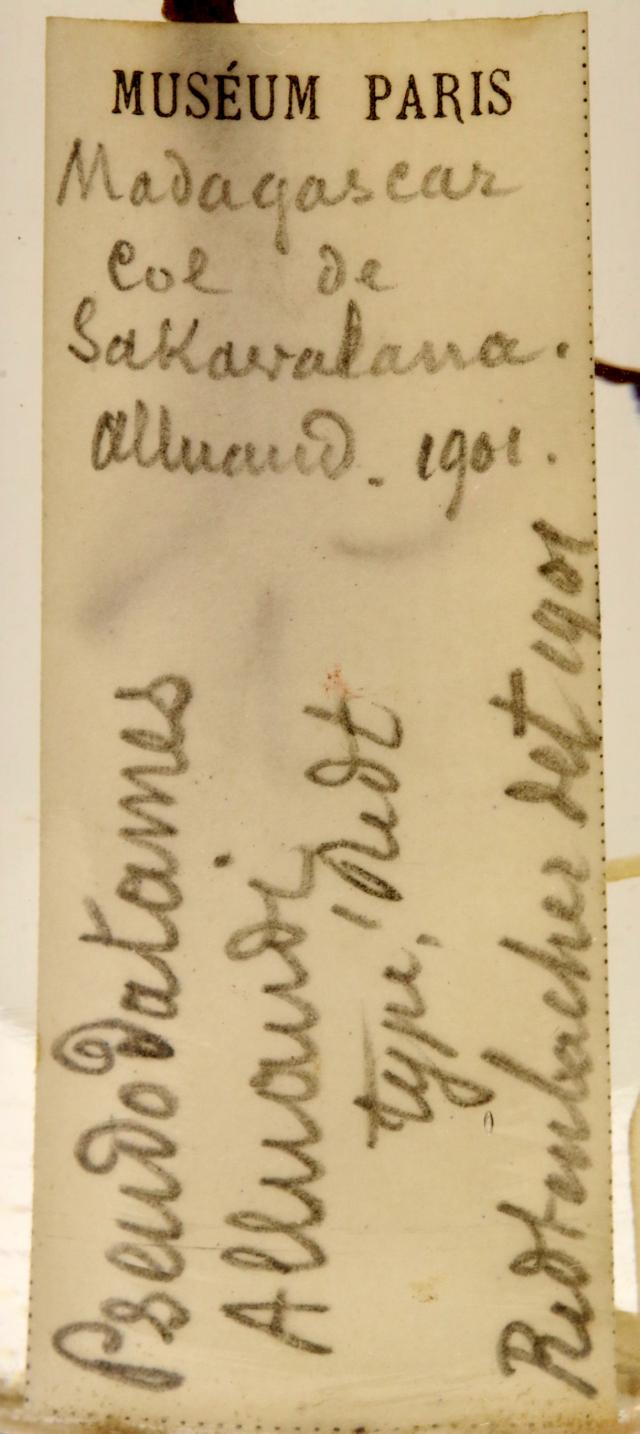 MUSÉUM PARIS
Madagascar
Col de
Sakavalana.
Alluaud. 1901.
Pseudodatames
Alluaudi
type, Redt
Redtenbacher det 1901